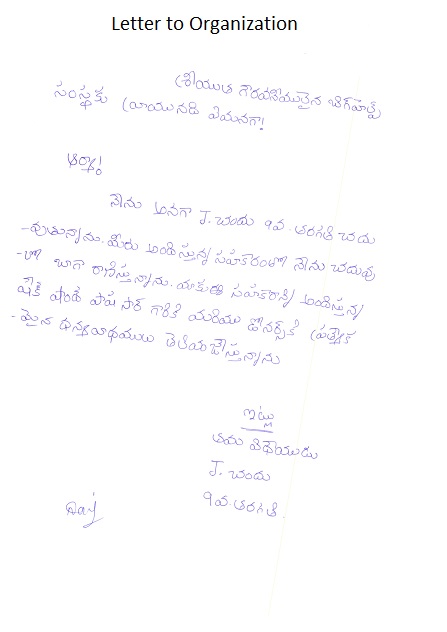 Letter to Organization
శ్రీయుత గౌరవనీయులైన బిగ్‌హెల్ప్
సంస్థకు వ్రాయునది ఏమనగా!
ఆర్యా!
నేను అనగా J. చందు 9వ. తరగతి చదు
-వుతున్నాను. మీరు అందిస్తున్న సహకారంతో నేను చదువు
-లో బాగా రాణిస్తున్నాను. నాకు సహకారాన్ని అందిస్తున్న
షేక్ చాంద్ పాషా సార్ గారికి మరియు డోనర్స్‌కి ప్రత్యేక
-మైన ధన్యవాదములు తెలియజేస్తున్నాను
ఇట్లు
తమ విధేయుడు
J. చందు
9వ. తరగతి